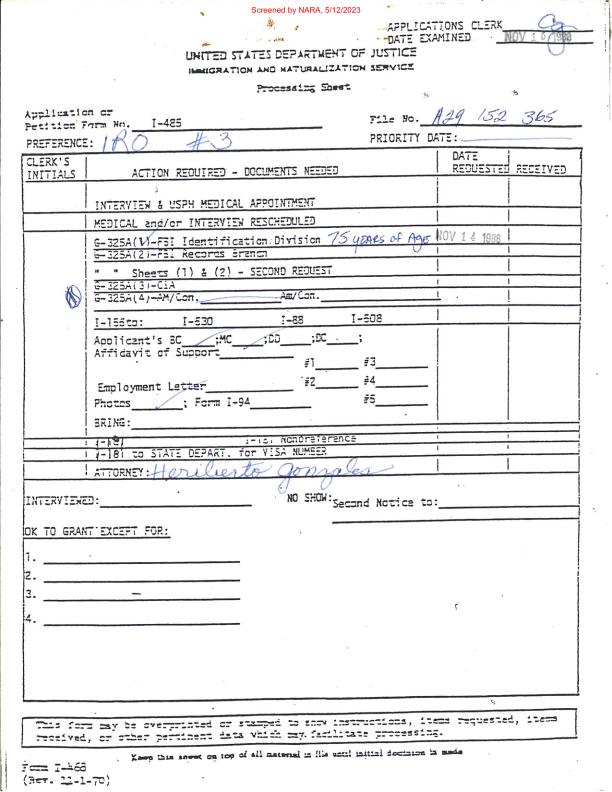 Screened by NARA, 5/12/2023
APPLICATIONS CLERK
DATE EXAMINED NOV 1 1988
UNITED STATES DEPARTMENT OF JUSTICE
IMMIGRATION AND NATURALIZATION SERVICE
Processing Sheet
Application or
Petition Form No. I-485 File No. A29 152 365
PREFERENCE: IRO #3 PRIORITY DATE:
CLERK'S INITIALS ACTION REQUIRED - DOCUMENTS NEEDED DATE REQUESTED RECEIVED
INTERVIEW & USPH MEDICAL APPOINTMENT
MEDICAL and/or INTERVIEW RESCHEDULED
G-325A(1)-FBI Identification Division 75 years of Age NOV 14 1988
G-325A(2)-FBI Records Branch
" " Sheets (1) & (2) - SECOND REQUEST
G-325A(3)-CIA
G-325A(4)-AM/Con. Am/Con.
I-155to: I-530 I-88 I-508
Applicant's BC ;MC ;DD ;DC ;
Affidavit of Support
#1 #3
Employment Letter #2 #4
Photos ; Form I-94 #5
BRING:
I-181 I-181 Nonoreference
I-181 to STATE DEPART. for VISA NUMBER
ATTORNEY: Heriberto Gonzales
INTERVIEWED: NO SHOW: Second Notice to:
OK TO GRANT EXCEPT FOR:
1.
2.
3.
4.
This form may be overprinted or stamped to show instructions, items requested, items
received, or other pertinent data which may facilitate processing.
Keep this sheet on top of all material in file until initial decision is made
Form I-468
(Rev. 11-1-70)